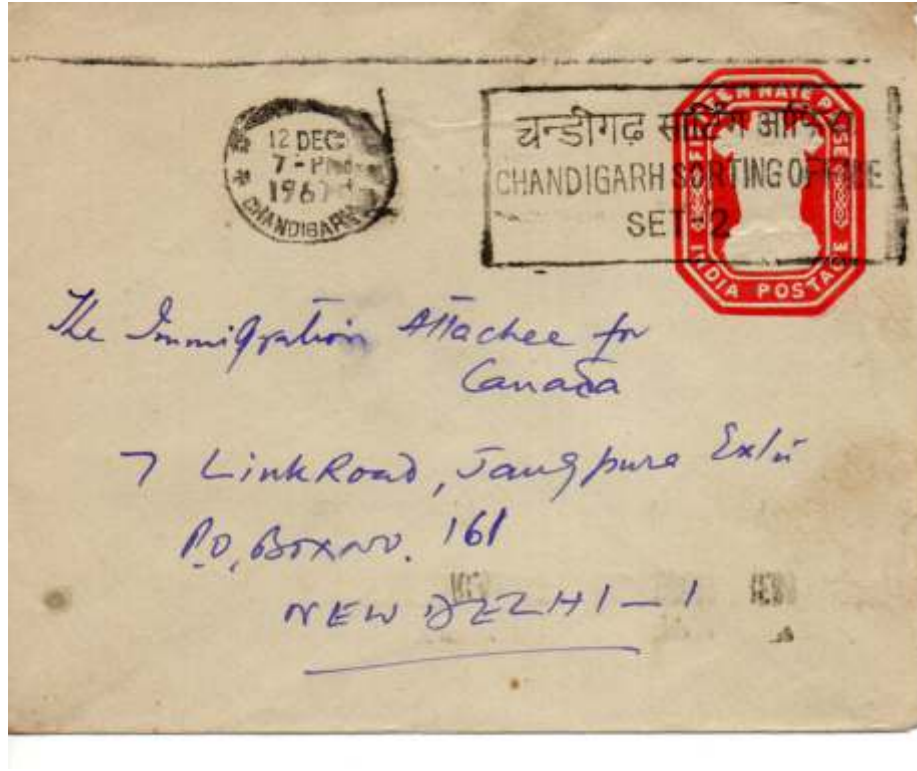 12 DEC
7-PM
196
CHANDIGARH
चन्डीगढ़ सार्टिंग आफिस
CHANDIGARH SORTING OFFICE
SET-2
FIFTEEN NAYE PAISE
INDIA POSTAGE
The Immigration Attachee for
Canada
7 Link Road, Jangpura Extn
P.O, Box No. 161
NEW DELHI-1